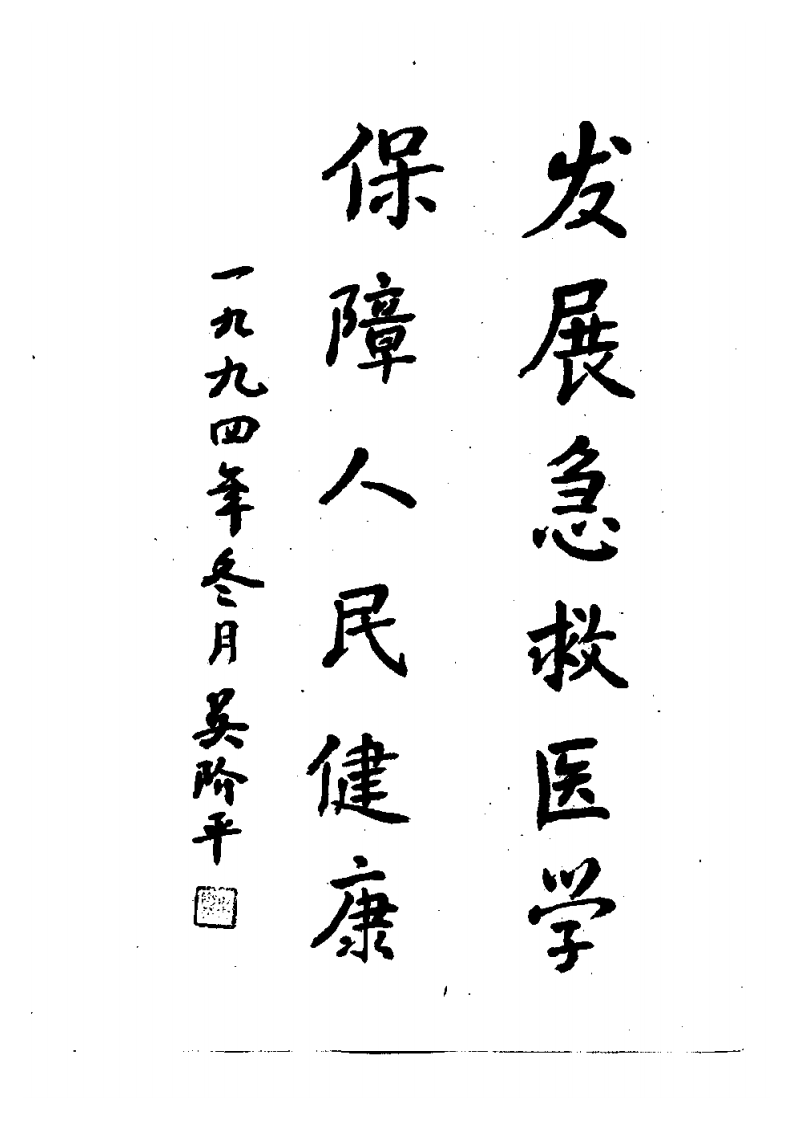 发展急救医学
保障人民健康
一九九四年冬月 吴阶平